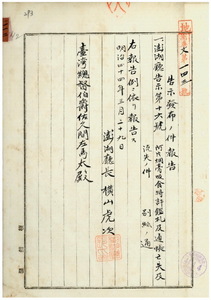 告示發布ノ件報告
一澎湖廳告示第十六號
阿片煙膏吸食特許鑑札及通帳亡失及
流失ノ件 別紙ノ通
右報告例ニ依リ報告ス
明治四十四年三月二十九日
澎湖廳長 橫山虎次
臺灣總督伯爵佐久間左馬太殿